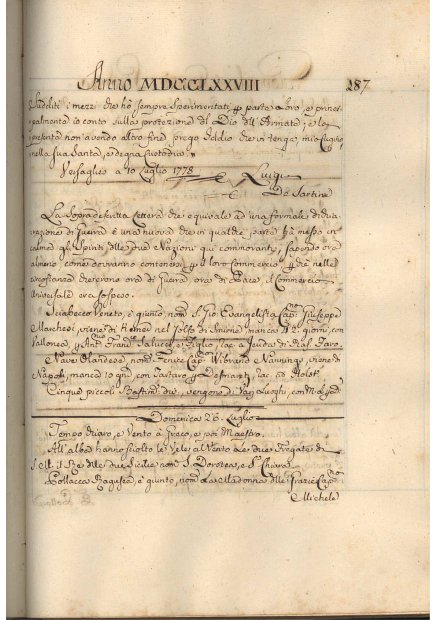 Anno MDCCLXXVIII 287
sudditi i mezzi che hò sempre sperimentati per parte loro, e princi-
palmente io conto sulla protezione del Dio dell'Armate; e la
presente non avendo altro fine prego Iddio che vi tenga, mio Cugino,
nella sua Santa, e degna Custodia.
Versaglies a 10 Luglio 1778
Luigi
De Sartine
La Sopradescritta Lettera che equivale ad una formale dichia-
razione di Guerra è una nuova che in qualche parte hà messo in
calma gli Spiriti delle due Nazioni qui commoranti, sapendo ora
almeno come dovranno contenersi per il loro commercio, che nelle
circostanze che erono ora di Guerra ora di Pace, il Commercio
Universale era sospeso.
Sciabecco Veneto, è giunto nom.º S. Gio: Evangelista Capno Giuseppe
Marchesi, viene di nel Golfo di Smirne manca 42 giorni, con
Vallonea, per Ant. Franc. Salucci, e Figlio,
Nave Olandese, nom.ª Fenice Capno Wibrand Nannings, viene di
Napoli, manca 10 gni con Tartaro per
Cinque piccoli Bastim.ti vengono di varj Luoghi, con
Domenica 26 Luglio
Tempo chiaro, e Vento à Greco, e poi Maestro.
All'alba hanno sciolto le Vele al Vento le due Fregate di
S. M. il Re delle due Sicilie nom.e S. Dorotea, e S.ª Chiara
Pollacca Ragusea, è giunto, nom.ª La Madonna delle Grazie Capno
Michele